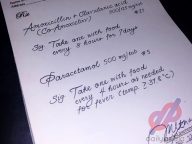 Amoxicillin + Clavulanic acid
(Co-Amoxiclav)
#21
Sig Take one with food
every 8 hours for 7 days
Paracetamol 500 mg/tab #5
Sig Take one with food
every 4 hours as needed
for fever (temp. ≥ 37.8°C)